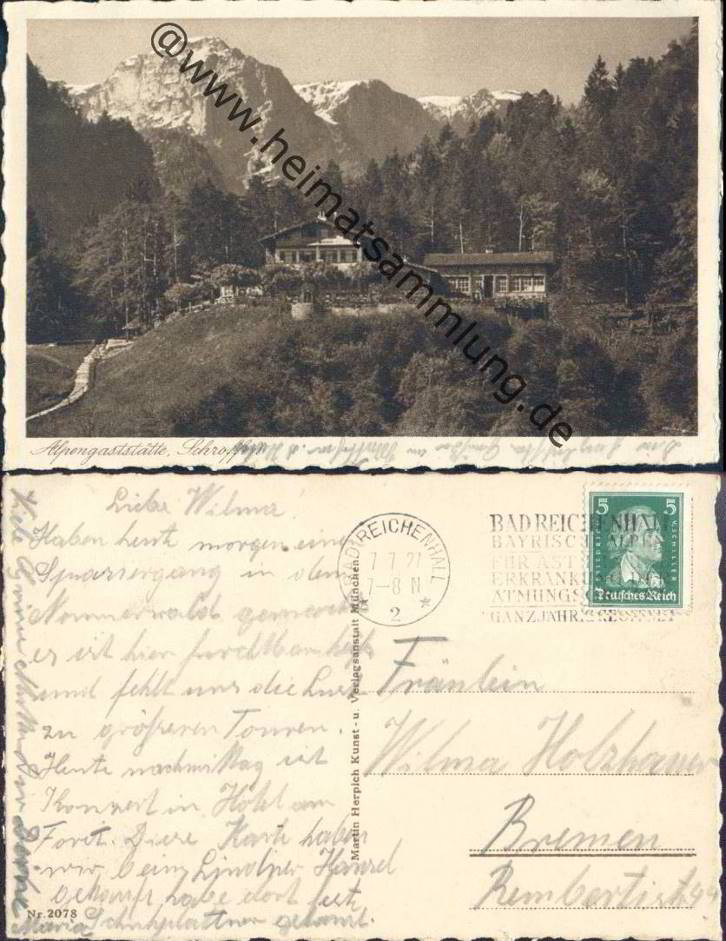 @www.heimatsammlung.de
Alpengaststätte, Schroffen
Liebe Wilma
Haben heute morgen einen
Spaziergang in den
Nonnerwald gemacht
es ist hier furchtbar heiß
und fehlt uns die Lust
zu größeren Touren.
Heute nachmittag ist
Konzert in Hotel am
Forst. Diese Karte haben
wir beim
gekauft habe dort fest
Schuhplattler getanzt.
Maria
Viele Grüße
Nr. 2078
Martin Herpich Kunst- u. Verlagsanstalt München
BAD REICHENHALL
7.7.27
7-8 N
2
BAD REICHENHALL
BAYRISCHE ALPEN
FÜR AST
ERKRANKU
ATMUNGSO
GANZJÄHRIG GEÖFFNET
5 5
FRIEDRICH
Deutsches Reich
Fräulein
Wilma Holzhauer
Bremen
Rembertistr. 99